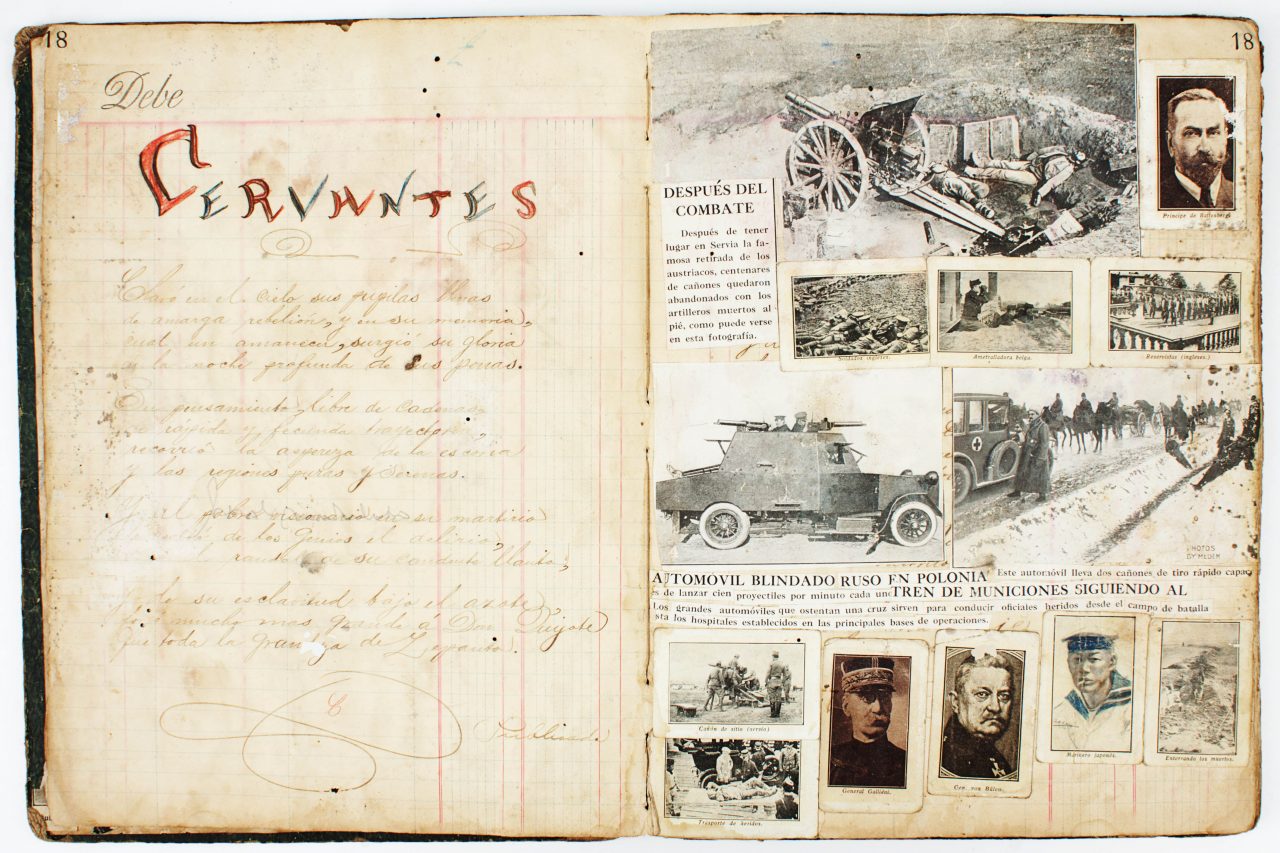 18
Debe
CERVANTES
Clavó en el Cielo sus pupilas llenas
de amarga rebelión, y en su memoria,
cual un amanecer, surgió su gloria
en la noche profunda de sus penas.
Su pensamiento, libre de cadenas,
rápida y fecunda trayectoria,
recorrió la aspereza de la escoria
y las regiones puras y Serenas.
pobre visionario en su martirio
de los Genios el delirio,
a su llanto;
Y de su esclavitud bajo el azote,
mucho mas Don Quijote
que toda la grandeza de Lepanto.
18
DESPUÉS DEL
COMBATE
Después de tener
lugar en Servia la fa-
mosa retirada de los
austriacos, centenares
de cañones quedaron
abandonados con los
artilleros muertos al
pié, como puede verse
en esta fotografía.
Príncipe de Battenberg
Soldados ingleses.
Ametralladora belga.
Reservistas (ingleses.)
PHOTOS
BY MEDEM
AUTOMÓVIL BLINDADO RUSO EN POLONIA Este automóvil lleva dos cañones de tiro rápido capac
es de lanzar cien proyectiles por minuto cada uno TREN DE MUNICIONES SIGUIENDO AL
Los grandes automóviles que ostentan una cruz sirven para conducir oficiales heridos desde el campo de batalla
sta los hospitales establecidos en las principales bases de operaciones.
Cañón de sitio (servio)
Trasporte de heridos.
General Galliéni.
Gen. von Bülow.
Marinero japonés.
Enterrando los muertos.